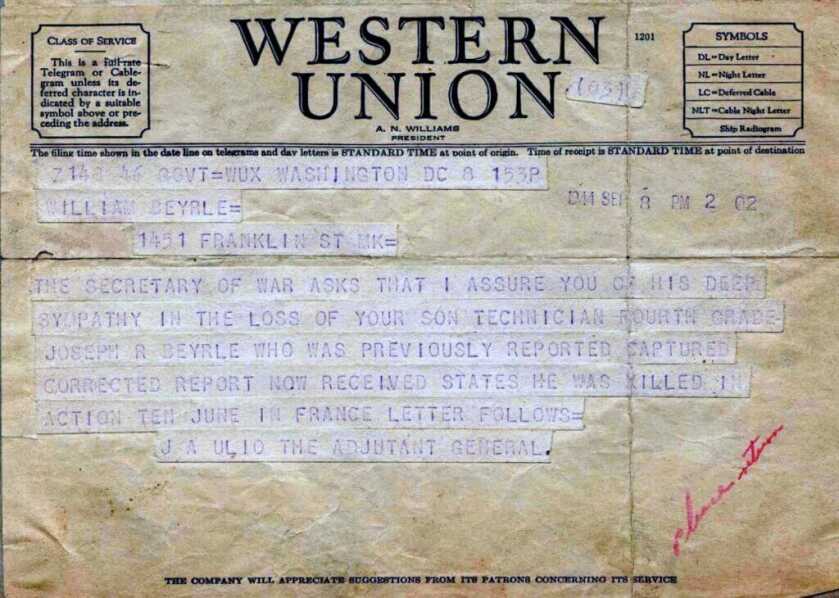 CLASS OF SERVICE
This is a full-rate
Telegram or Cable-
gram unless its de-
ferred character is in-
dicated by a suitable
symbol above or pre-
ceding the address.
WESTERN
UNION
A. N. WILLIAMS
PRESIDENT
1201
SYMBOLS
DL=Day Letter
NL=Night Letter
LC=Deferred Cable
NLT=Cable Night Letter
Ship Radiogram
The filing time shown in the date line on telegrams and day letters is STANDARD TIME at point of origin. Time of receipt is STANDARD TIME at point of destination
Z148 46 GOVT=WUX WASHINGTON DC 8 153P
WILLIAM BEYRLE=
1944 SEP 8 PM 2 02
1451 FRANKLIN ST MK=
THE SECRETARY OF WAR ASKS THAT I ASSURE YOU OF HIS DEEP
SYMPATHY IN THE LOSS OF YOUR SON TECHNICIAN FOURTH GRADE
JOSEPH R BEYRLE WHO WAS PREVIOUSLY REPORTED CAPTURED
CORRECTED REPORT NOW RECEIVED STATES HE WAS KILLED IN
ACTION TEN JUNE IN FRANCE LETTER FOLLOWS=
J A ULIO THE ADJUTANT GENERAL.
please return
THE COMPANY WILL APPRECIATE SUGGESTIONS FROM ITS PATRONS CONCERNING ITS SERVICE